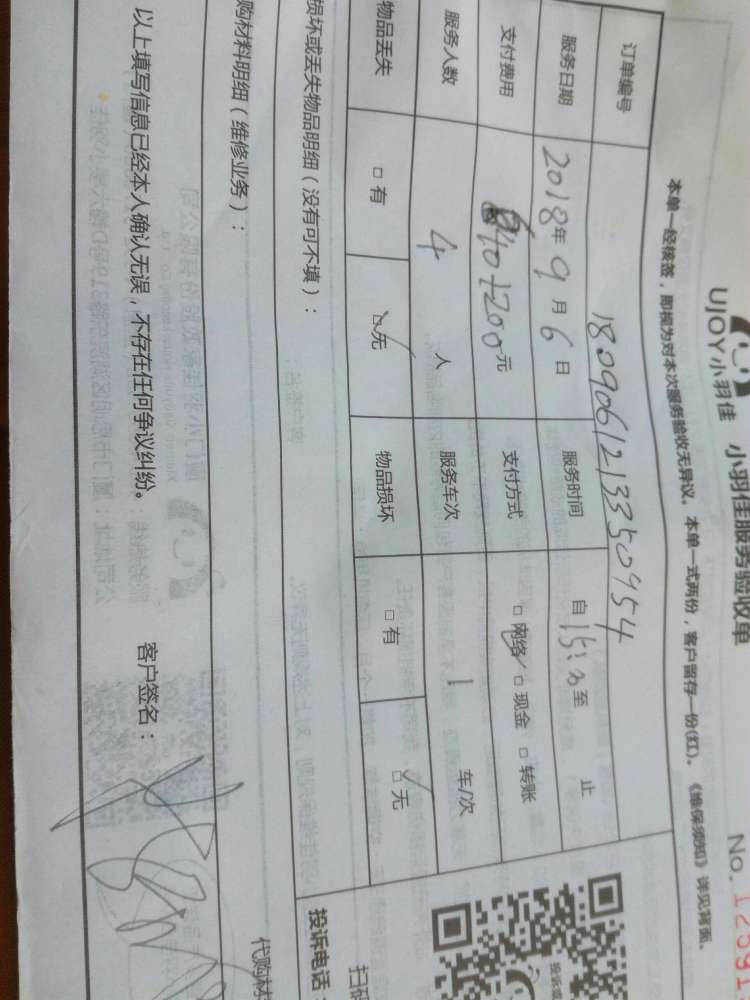 UJOY小羽佳 小羽佳服务验收单
No.12591
本单一经核签，即视为对本次服务验收无异议。本单一式两份，客户留存一份(红)。《维保须知》详见背面。
订单编号 180906121335 0954
服务日期 2018年9月6日 服务时间 自15: 至 止
支付费用 40+200元 支付方式 □网络 □现金 □转账
服务人数 4人 服务车次 1 车/次
物品丢失 □有 □无 物品损坏 □有 □无
损坏或丢失物品明细（没有可不填）：
投诉电话：
扫码
购材料明细（维修业务）：
代购材
以上填写信息已经本人确认无误，不存在任何争议纠纷。 客户签名：